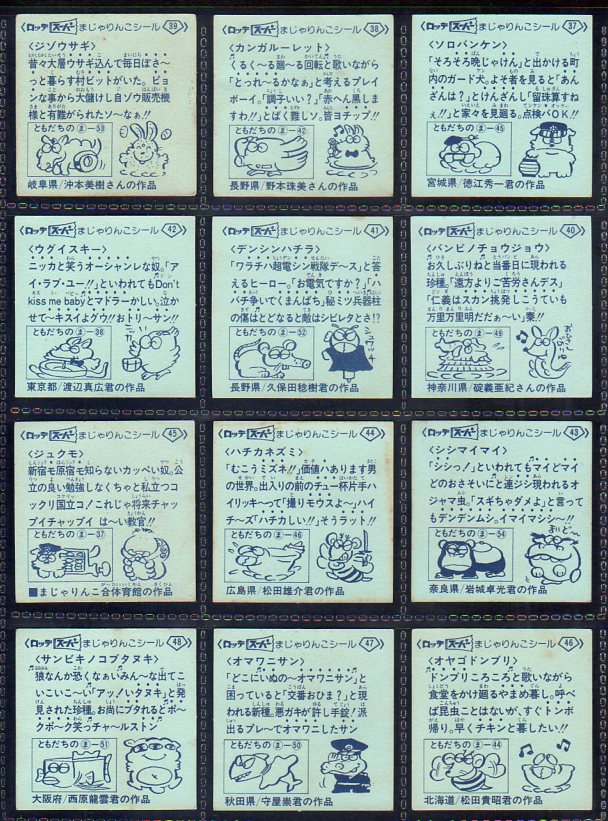 ロッテ スーパー まじゃりんこシール 39
〈ジゾウサギ〉
昔々大層ウサギ込んで毎日ぼさ〜
っと暮らす村ビットがいた。ピョ
ンな事から大儲けし自ゾウ販売機
様と有難がられたソ〜なぁ!!
ともだちの ま−53
岐阜県/沖本美樹さんの作品
ロッテ スーパー まじゃりんこシール 38
〈カンガルーレット〉
くるく〜る廻〜る回転と歌いながら
「とっれ〜るかなぁ」と考えるプレイ
ボーイ。「調子いい?」「赤へ黒しま
すわ!!」とばく難しソ。皆ヨチップ!!
ともだちの ま−42
長野県/野本珠美さんの作品
ロッテ スーパー まじゃりんこシール 37
〈ソロバンケン〉
「そろそろ晩じゃけん」と出かける町
内のガード犬。よそ者を見ると「あん
ざんは?」とけんざんし「留珠算すね
ぇ!!」と家々を見廻る。点検バOK!!
ともだちの ま−45
宮城県/徳江秀一君の作品
ロッテ スーパー まじゃりんこシール 42
〈ウグイスキー〉
ニッカと笑うオーシャンレな奴。「ア
イ・ラブ・ユー!!」といわれてもDon't
kiss me babyとマドラーかしい。泣か
せて〜キスイよグウ!!おトリ〜サン!!
ともだちの ま−38
東京都/渡辺真広君の作品
ロッテ スーパー まじゃりんこシール 41
〈デンシンハチラ〉
「ワラチハ超電シン戦隊デ〜ス」と答
えるヒーロー。「お電気ですか?」「ハ
バチ争いてくまんばち」秘ミツ兵器柱
の傷はとどなると敵はシビレタとさ!?
ともだちの ま−52
長野県/久保田稔樹君の作品
ロッテ スーパー まじゃりんこシール 40
〈バンビノチョウジョウ〉
お久しぶりねと当番日に現われる
珍種。「遠方よりご苦労さんデス」
「仁義はスカン挑発しこうていも
万里万里明だだぁ〜い」秦!!
ともだちの ま−49
神奈川県/碇義亜紀さんの作品
ロッテ スーパー まじゃりんこシール 45
〈ジュクモ〉
新宿も原宿も知らないカッペい奴。公
立の良い勉強しなくちゃと私立つコ
ックリ国立コ!これじゃ将来チャッ
プイチャップイ は〜い教官!!
ともだちの ま−37
■まじゃりんこ合体育館の作品
ロッテ スーパー まじゃりんこシール 44
〈ハチカネズミ〉
「むこうミズネ!!」価値ハあります男
の世界。出入りの前のチュー杯片手ハ
イリッキ〜って「撮りモウスよ〜」ハイ
チ〜ズ「ハチカしい!!」そうラット!!
ともだちの ま−46
広島県/松田雄介君の作品
ロッテ スーパー まじゃりんこシール 43
〈シシマイマイ〉
「シシっ!」といわれてもマイどマイ
どのおさそいにと連ジシ現われるオ
ジャマ虫。「スギちゃダメよ」と言って
もデンデンムシ。イマイマシシ〜!!
ともだちの ま−34
奈良県/岩城卓光君の作品
ロッテ スーパー まじゃりんこシール 48
〈サンビキノコブタヌキ〉
狼なんか恐くなぁいみん〜な出てこ
いこいこい〜♪「アッ!いタヌキ」と発
見された珍種。お尚にブタれるとポ〜
クポーク笑っチャールストン
ともだちの ま−51
大阪府/西原龍雲君の作品
ロッテ スーパー まじゃりんこシール 47
〈オマワニサン〉
「どこにいぬの〜オマワニサン」と
困っていると「交番おひま?」と現
われる新種。悪ガキが許し手錠!派
出るブレ〜でオマワニしたサン
ともだちの ま−50
秋田県/守屋崇君の作品
ロッテ スーパー まじゃりんこシール 46
〈オヤゴドンブリ〉
「ドンブリころころと歌いながら
食堂をかけ廻るやまめ暮し。呼べ
ば昆虫ことはないが、すぐトンボ
帰り。早くチキンと暮したい!!
ともだちの ま−44
北海道/松田貴昭君の作品